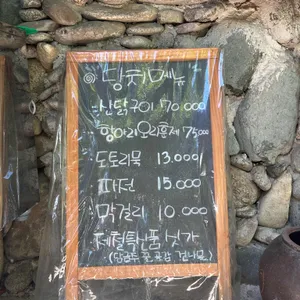 메뉴
산닭구이 70.000
항아리오리훈제 75.000
도토리묵 13.000
파전 15.000
막걸리 10.000
제철특산품